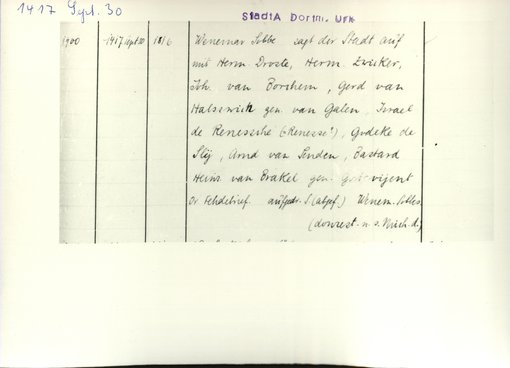 1417 Sept. 30
StadtA Dortm. Urk
1900 1417 Sept 30 1816 Wenemar Sobbe sagt der Stadt auf
mit Herm. Droste, Herm. Zwicker,
Joh. van Borchem, Gerd van
Halswick gen. van Galen, Israel
de Renessche (Renesse?), Godeke de
Slij, Arnd van Linden, Bastard
Heinr van Brakel gen.
Or Fehdebrief. aufgedr. S (abgef.) Wenem. Sobbes